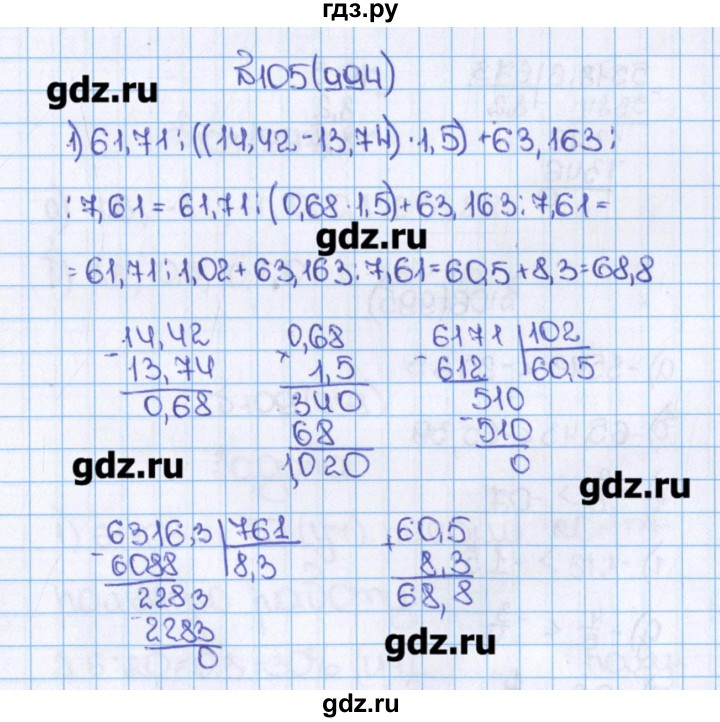 гдз.ру
В105(994)
gdz.ru
1) 61,71:((14,42-13,74)·1,5)+63,163:
:7,61=61,71:(0,68·1,5)+63,163:7,61=
gdz.ru
=61,71:1,02+63,163:7,61=60,5+8,3=68,8
14,42
- 13,74
0,68
0,68
× 1,5
340
68
1,020
6171 | 102
- 612 | 60,5
510
- 510
0
gdz.ru
gdz.ru
6316,3 | 761
- 6088 | 8,3
2283
- 2283
0
60,5
+ 8,3
68,8
gdz.ru
gdz.ru